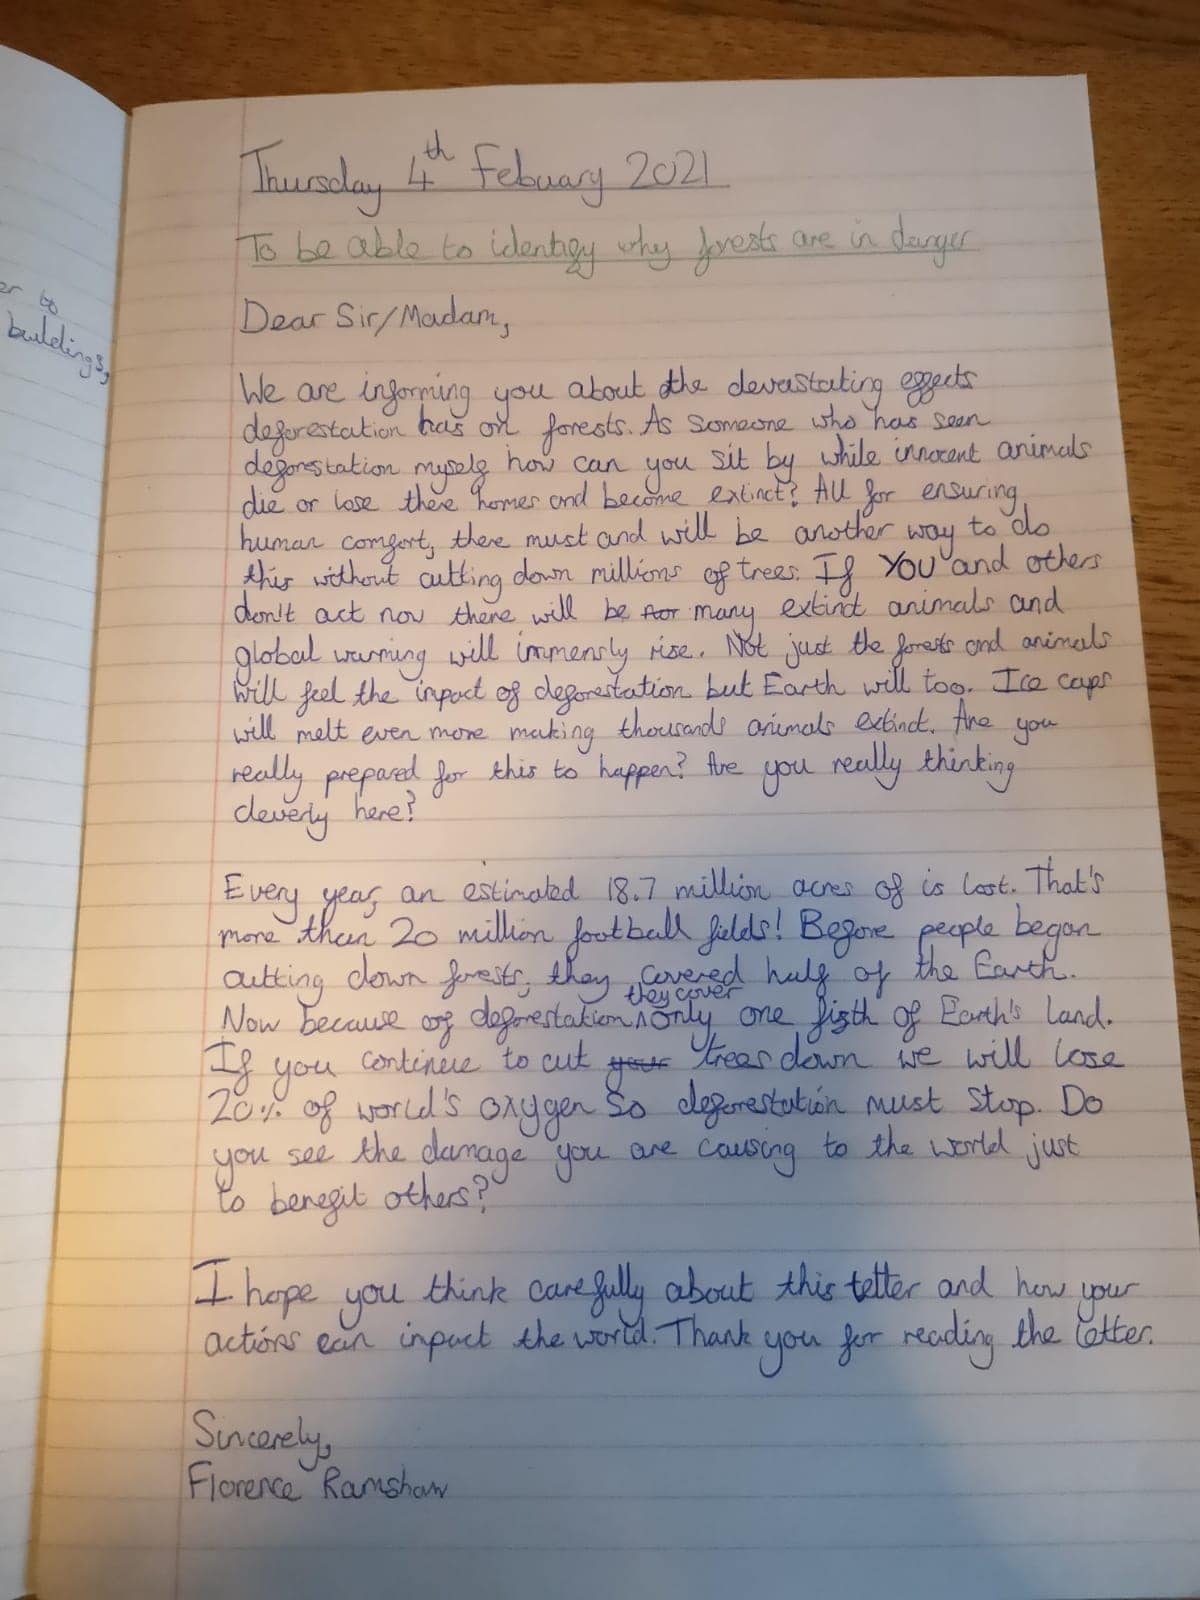 er to
buildings,
Thursday 4th Febuary 2021
To be able to identify why forests are in danger
Dear Sir/Madam,
We are informing you about the devastating effects
deforestation has on forests. As someone who has seen
deforestation myself how can you sit by while innocent animals
die or lose there homes and become extinct? All for ensuring
human comfort, there must and will be another way to do
this without cutting down millions of trees. If YOU and others
don't act now there will be many extinct animals and
global warming will immensly rise. Not just the forests and animals
will feel the inpact of deforestation but Earth will too. Ice caps
will melt even more making thousands animals extinct. Are you
really prepared for this to happen? Are you really thinking
cleverly here?
Every year, an estimated 18.7 million acres of is lost. That's
more than 20 million football fields! Before people began
cutting down forests, they covered half of the Earth.
Now because of deforestation they cover only one fifth of Earth's land.
If you continue to cut your trees down we will lose
20% of world's oxygen so deforestation must stop. Do
you see the damage you are causing to the world just
to benefit others?
I hope you think carefully about this letter and how your
actions can inpact the world. Thank you for reading the letter.
Sincerely,
Florence Ramshaw